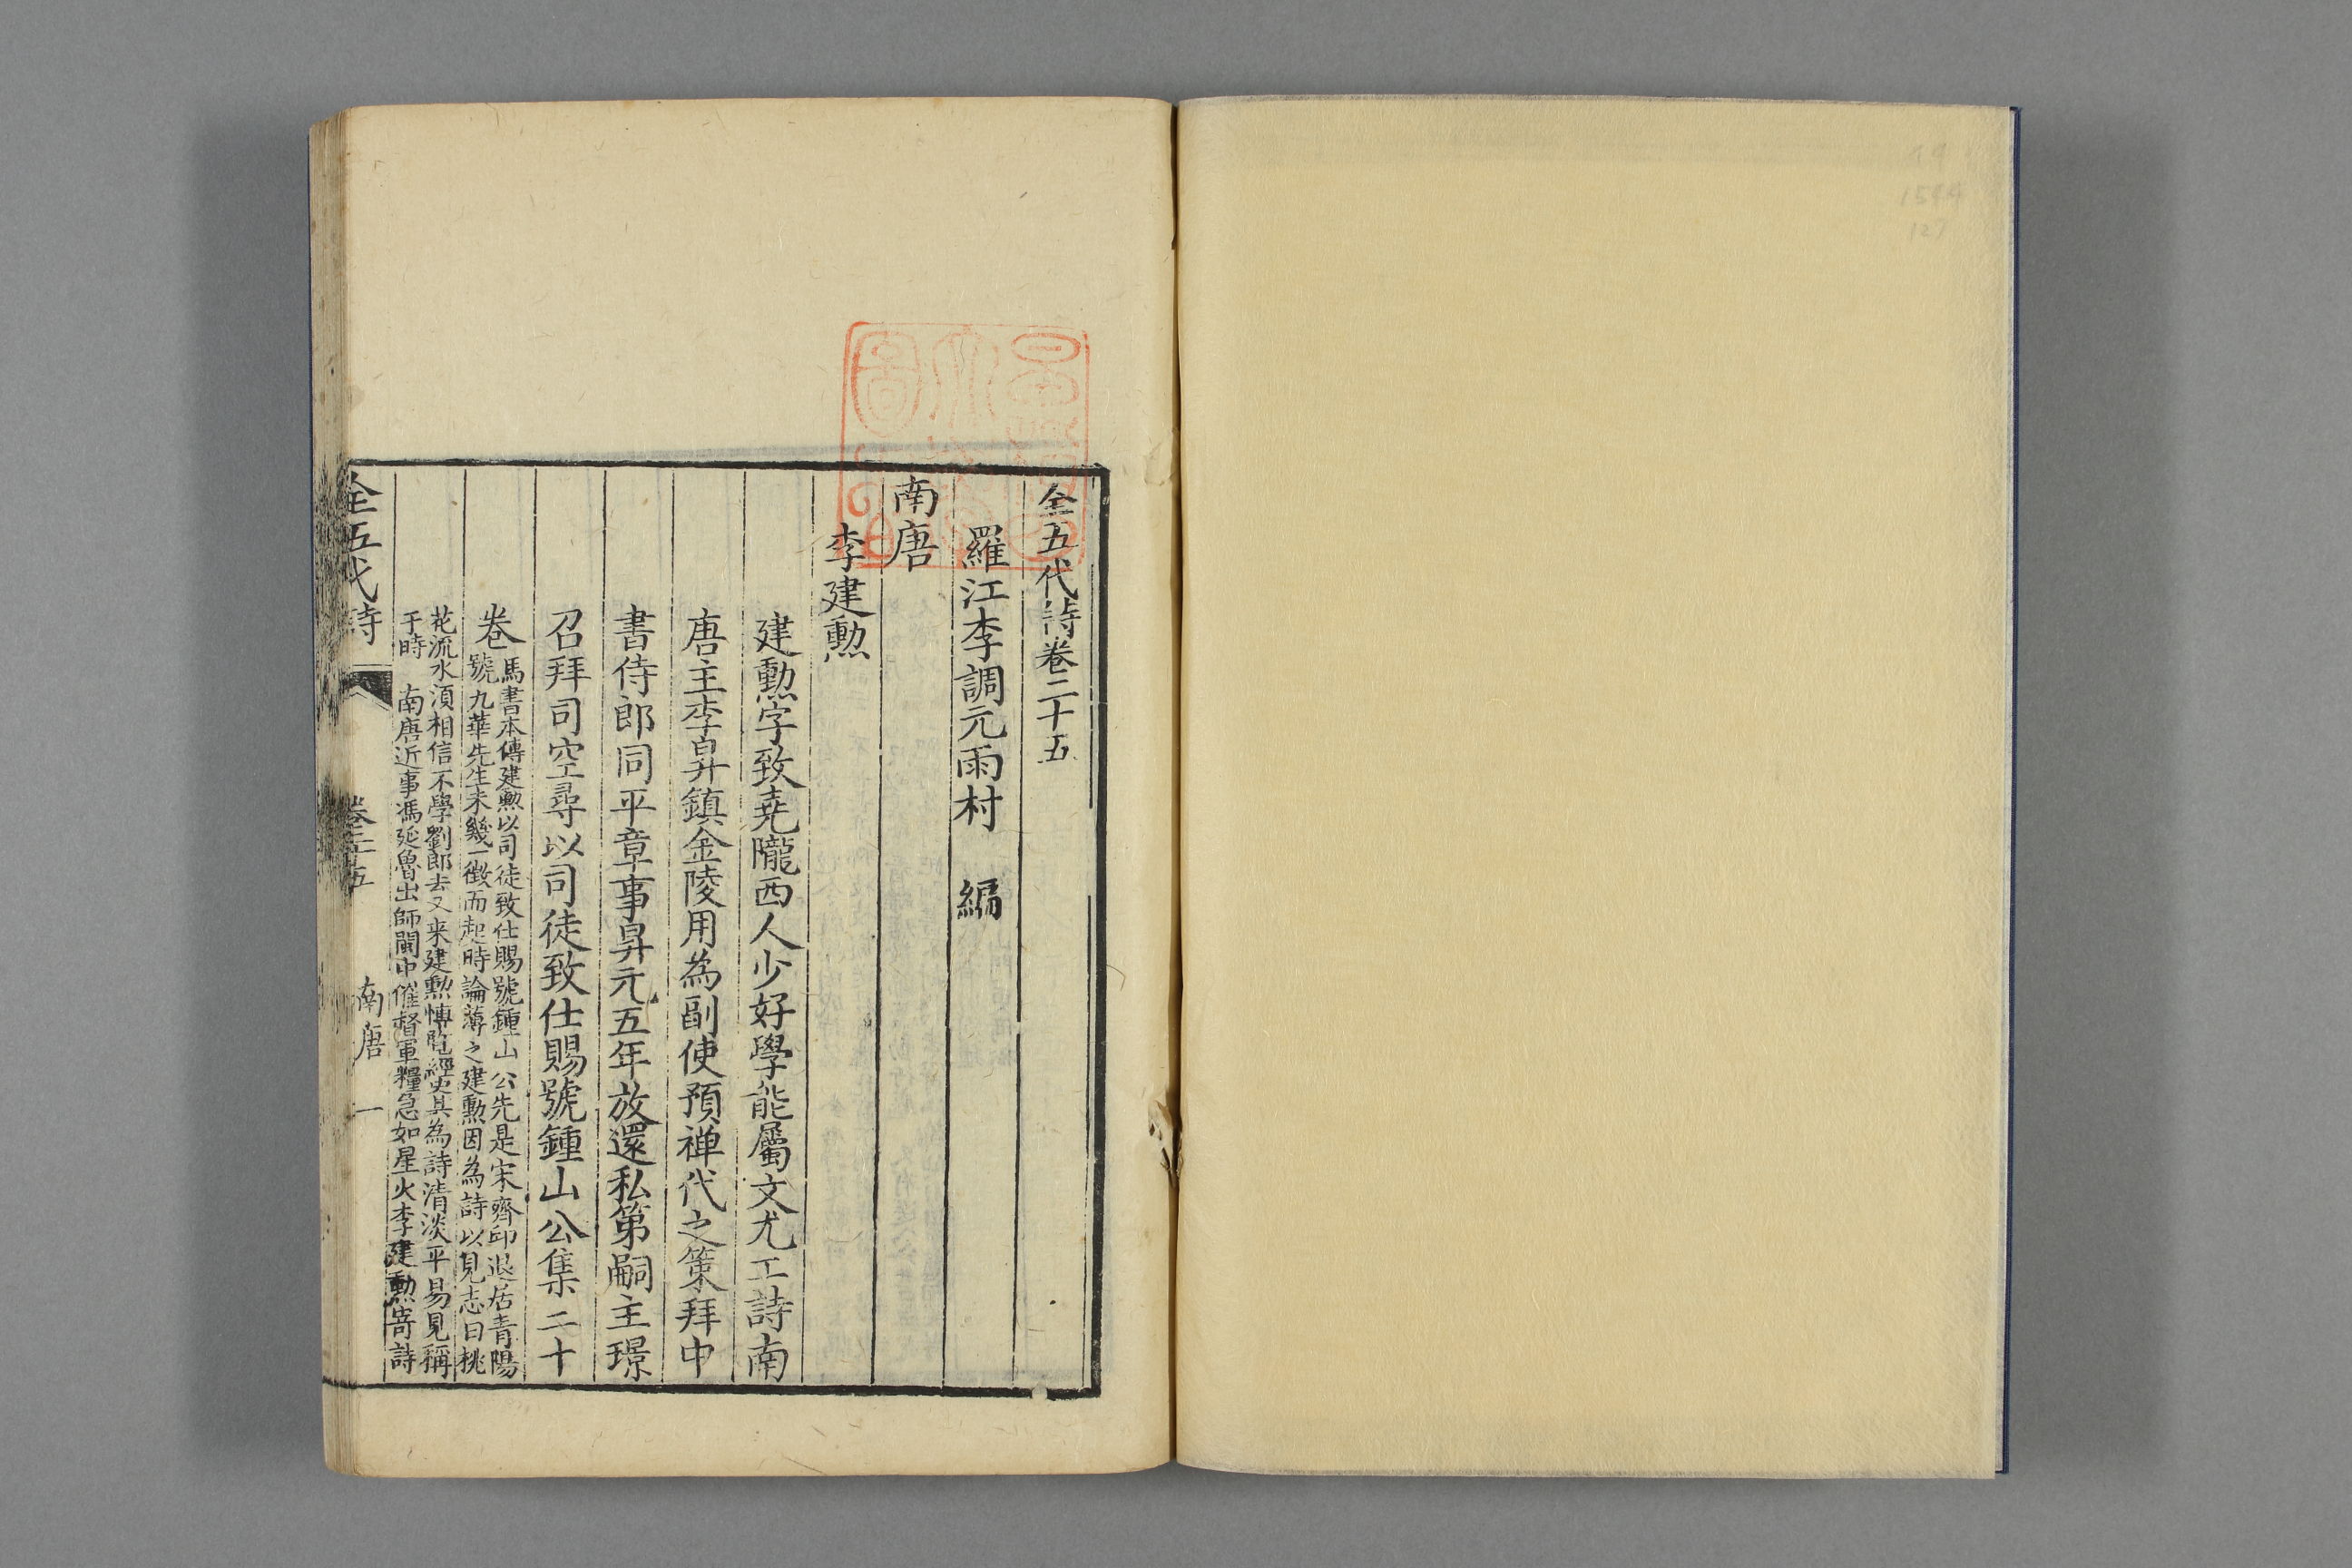 全五代詩卷二十五
羅江李調元雨村 編
南唐
李建勲
建勲字致堯隴西人少好學能屬文尤工詩南
唐主李昪鎮金陵用為副使預禅代之策拜中
書侍郎同平章事昇元五年放還私第嗣主璟
召拜司空尋以司徒致仕賜號鍾山公集二十
卷
馬書本傳建勲以司徒致仕賜號鍾山公先是宋齊卬退居青陽
號九華先生未幾一徵而起時論薄之建勲因為詩以見志曰桃
花流水須相信不學劉郎去又来建勲愽覧經史其為詩清淡平易見稱
于時 南唐近事馮延魯出師閩中催督軍糧急如星火李建勲寄詩
全五代詩 卷二十五 南唐 一